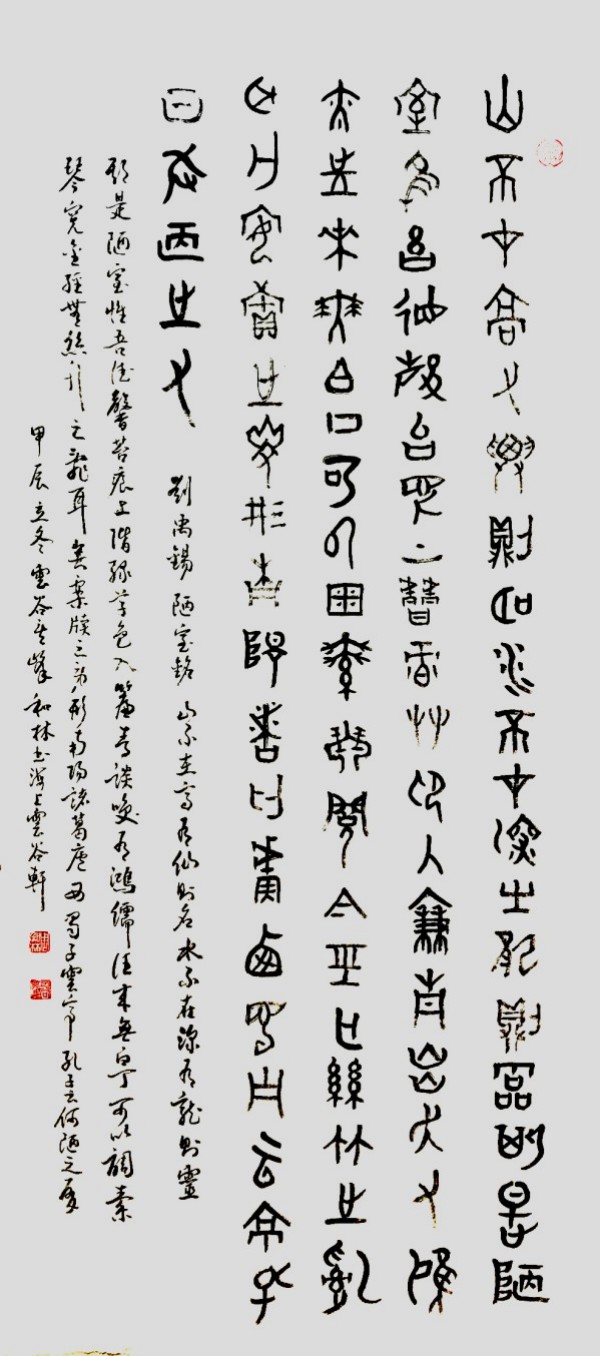 山不才高又仙則名水不才深㞢龍則霝斯是陋
室隹吾德馨苔痕上階綠艸色入簾青談笑又鴻
儒往來無白丁可以調素琴閱金經亡絲竹之亂
耳亡案牘之勞形南陽諸葛廬西蜀子云亭孔
曰何陋之又
劉禹錫 陋室銘 山不在高有仙則名水不在深有龍則靈
斯是陋室惟吾德馨苔痕上階綠草色入簾青談笑有鴻儒往來無白丁可以調素
琴閱金經無絲竹之亂耳無案牘之勞形南陽諸葛廬西蜀子雲亭孔子云何陋之有
甲辰立冬雲谷峰和林書海上雲谷軒